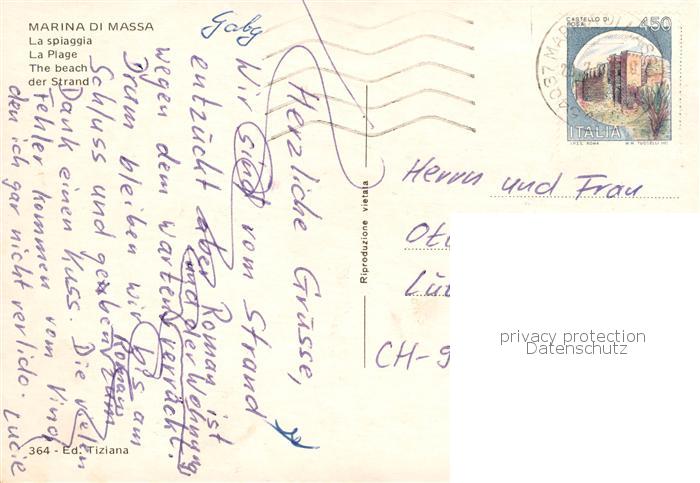 MARINA DI MASSA
La spiaggia
La Plage
The beach
der Strand
Gaby
Herzliche Grüsse,
Wir sind vom Strand
entzückt aber Roman ist
wegen dem warten und der Wohnung verrückt.
Darum bleiben wir bis am
Schluss und geben Roman zum
Dank einen Kuss. Die vielen
Fehler kommen vom Vino
den ich gar nicht verlido. Lucie
364 - Ed. Tiziana
Riproduzione vietata
CASTELLO DI
ROSA
450
ITALIA
I.P.Z.S. ROMA
Herrn und Frau
CH-9
privacy protection
Datenschutz